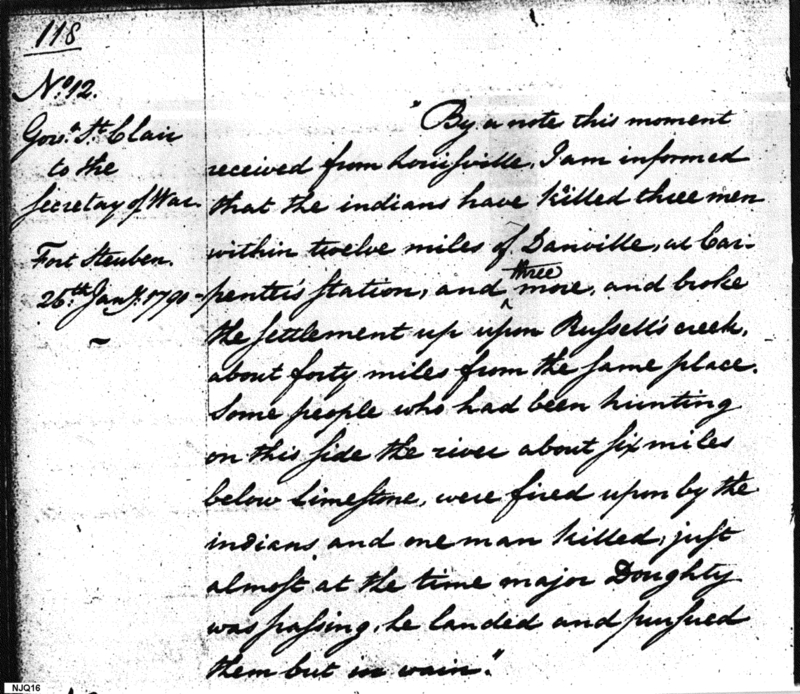 118
No. 12.
Govr. St. Clair
to the
Secretary of War
Fort Steuben.
26th. Jany. 1790 -
"By a note this moment
received from Louisville, I am informed
that the indians have killed three men
within twelve miles of Danville, at Car-
penter's station, and three more, and broke
the settlement up upon Russell's creek,
about forty miles from the same place.
Some people who had been hunting
on this side the river about six miles
below Limestone, were fired upon by the
indians and one man killed, just
almost at the time major Doughty
was passing, he landed and pursued
them but in vain."
NJQ16